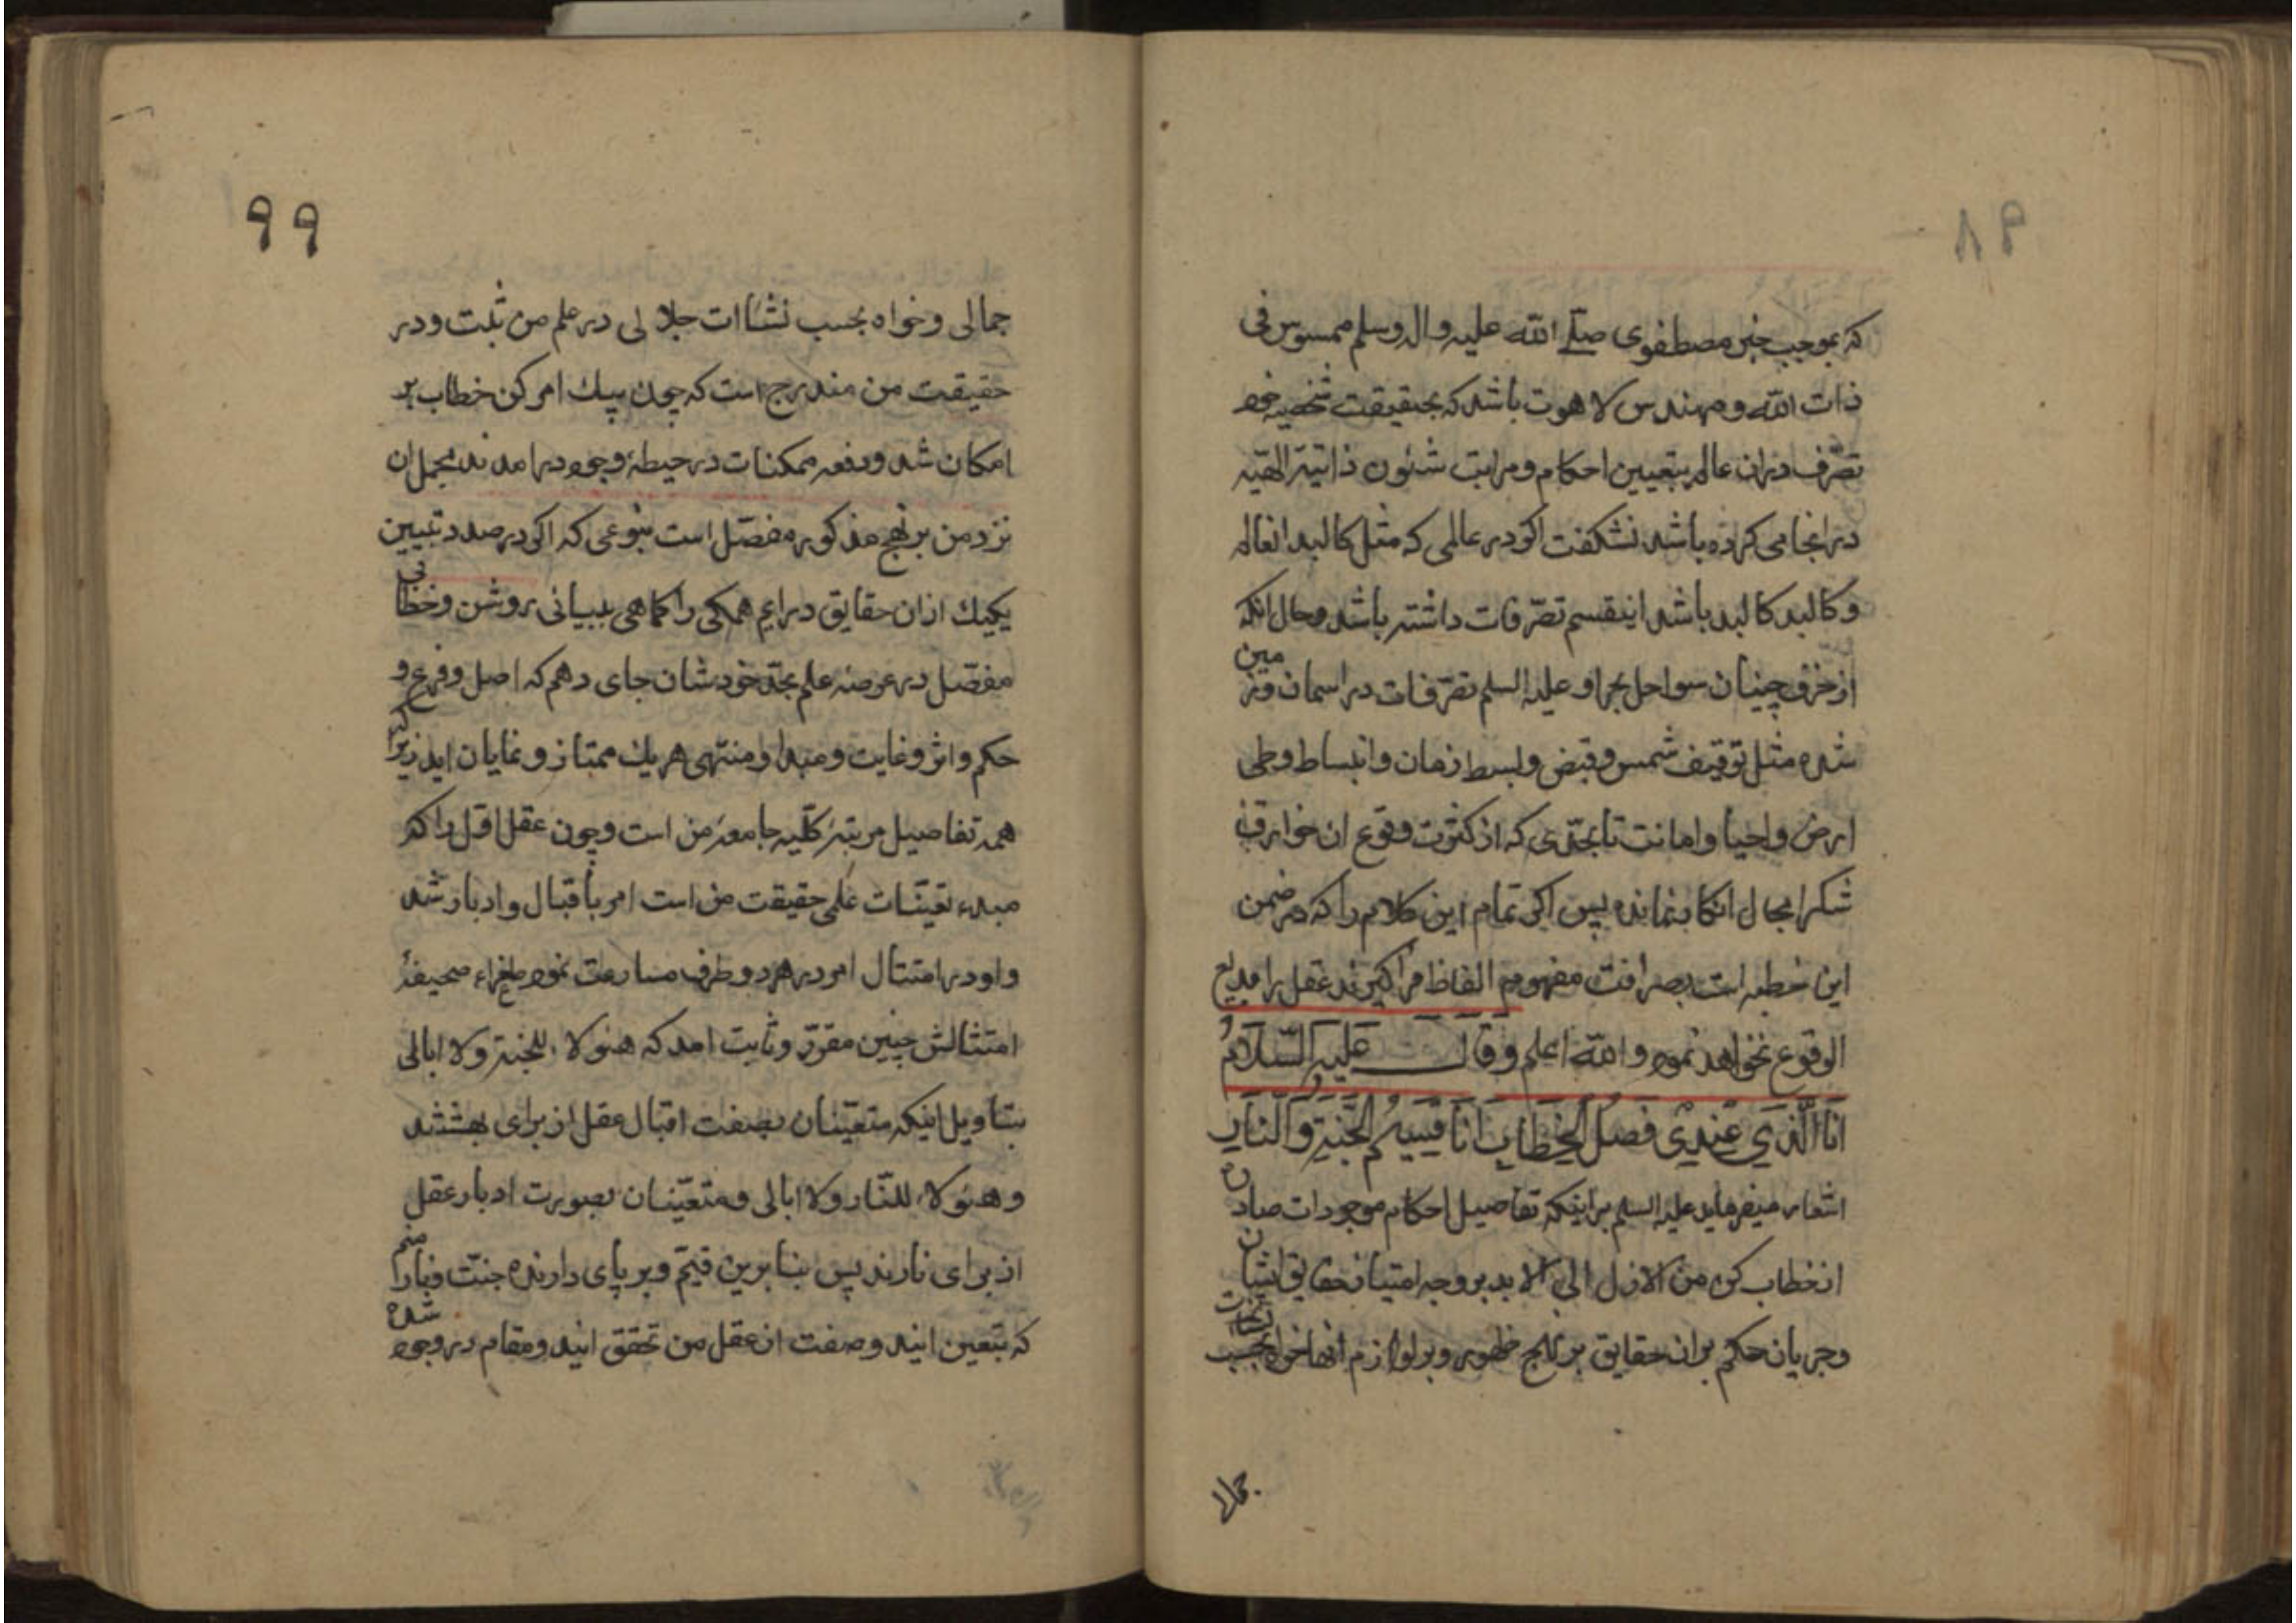 ۹۸
که بموجب خبر مصطفوی صلی الله علیه واله وسلم ممسوس فی
ذات الله و مهندس لاهوت باشد که بحقیقت شخصیه خود
تصرّف دران عالم بتعیین احکام و مراتب شئون ذاتیّه الهیّه
در انجا می کرده باشد نشکفت اکر در عالمی که مثل کالبد انعالم
و کالبد کالبد باشد اینقسم تصرّفات داشته باشد و حال انکه
از خرق چینان سواحل بحر او علیه السلم تصرّفات در اسمان و زمین
شده مثل توقیف شمس و قبض و بسط زمان و انبساط و طی
ارض و احیا و اماتت تا بحدّی که از کثرت وقوع ان خوارق
شکرا مجال انکار نمانده پس اکر تمام این کلام را که در ضمن
این خطبه است بصرافت مفهوم الفاظ فرا کیرند عقل را بدیع
الوقوع نخواهد نمود والله اعلم وقال علیه السّلام
انا الّذی عندی فصل الخطاب انا قسیم الجنّة والنّار
اشعار میفرماید علیه السلم براینکه تفاصیل احکام موجودات صادره
از خطاب کن من الازل الی الابد بر وجه امتیاز حقایق ایشان
و جریان حکم بران حقایق بر نهج ظهور و بر لوازم انها خواه بحسب نشاات
جمالی
۹۹
جمالی و خواه بحسب نشاات جلالی در علم من ثبت و در
حقیقت من مندرج است که چون بیک امر کن خطاب بر
امکان شد و دفعه ممکنات در حیطهٔ وجود درامدند مجمل ان
نزد من بر نهج مذکور مفصّل است بنوعی که اکر در صدد تبیین
یکیک ازان حقایق درایم همکی را کماهی ببیانی روشن و خطابی
مفصّل در عرصه علم بحدّ خودشان جای دهم که اصل و فرع و
حکم و اثر و غایت و مبدا و منتهی هر یک ممتاز و نمایان اید زیرا که
همه تفاصیل مرتبهٔ کلّیه جامعهٔ من است و چون عقل اوّل را که
مبدء تعیّنات علمی حقیقت من است امر باقبال و ادبار شد
و او در امتثال امر در هر دو طرف مسارعت نمود طغراء صحیفهٔ
امتثالش چنین مقرّر و ثابت امد که هئولاء للجنة ولا ابالی
بتاویل اینکه متعیّنان بصفت اقبال عقل از برای بهشتند
و هئولاء للنّار ولا ابالی و متعیّنان بصورت ادبار عقل
از برای نارند پس بنابرین قیّم و بر پای دارنده جنّت و نار منم
که بتعین ایند و صفت از عقل من تحقق ایند و مقام در وجود شده